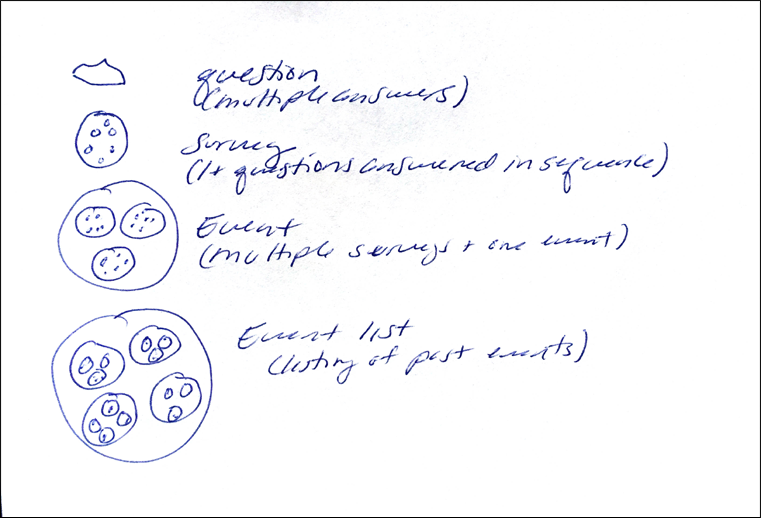 question
(multiple answers)
Survey
(1+ questions answered in sequence)
Event
(multiple surveys + one event)
Event list
(listing of past events)